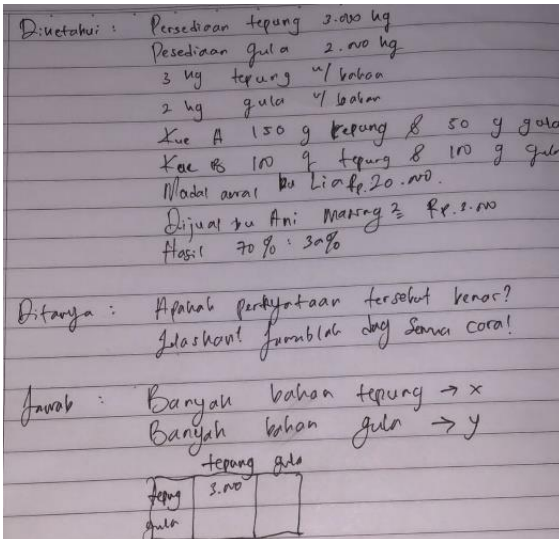 Diketahui : Persediaan tepung 3.000 kg
Pesediaan gula 2.000 kg
3 kg tepung u/ bahan
2 kg gula u/ bahan
Kue A 150 g tepung & 50 g gula
Kue B 100 g tepung & 100 g gula
Modal awal bu Lia Rp. 20.000.
Dijual bu Ani masing2 Rp. 3.000
Hasil 70% : 30%
Ditanya : Apakah pernyataan tersebut benar?
Jelaskan! Jawablah dng semua cara!
Jawab : Banyak bahan tepung → x
Banyak bahan gula → y
tepung gula
tepung 3.000
gula